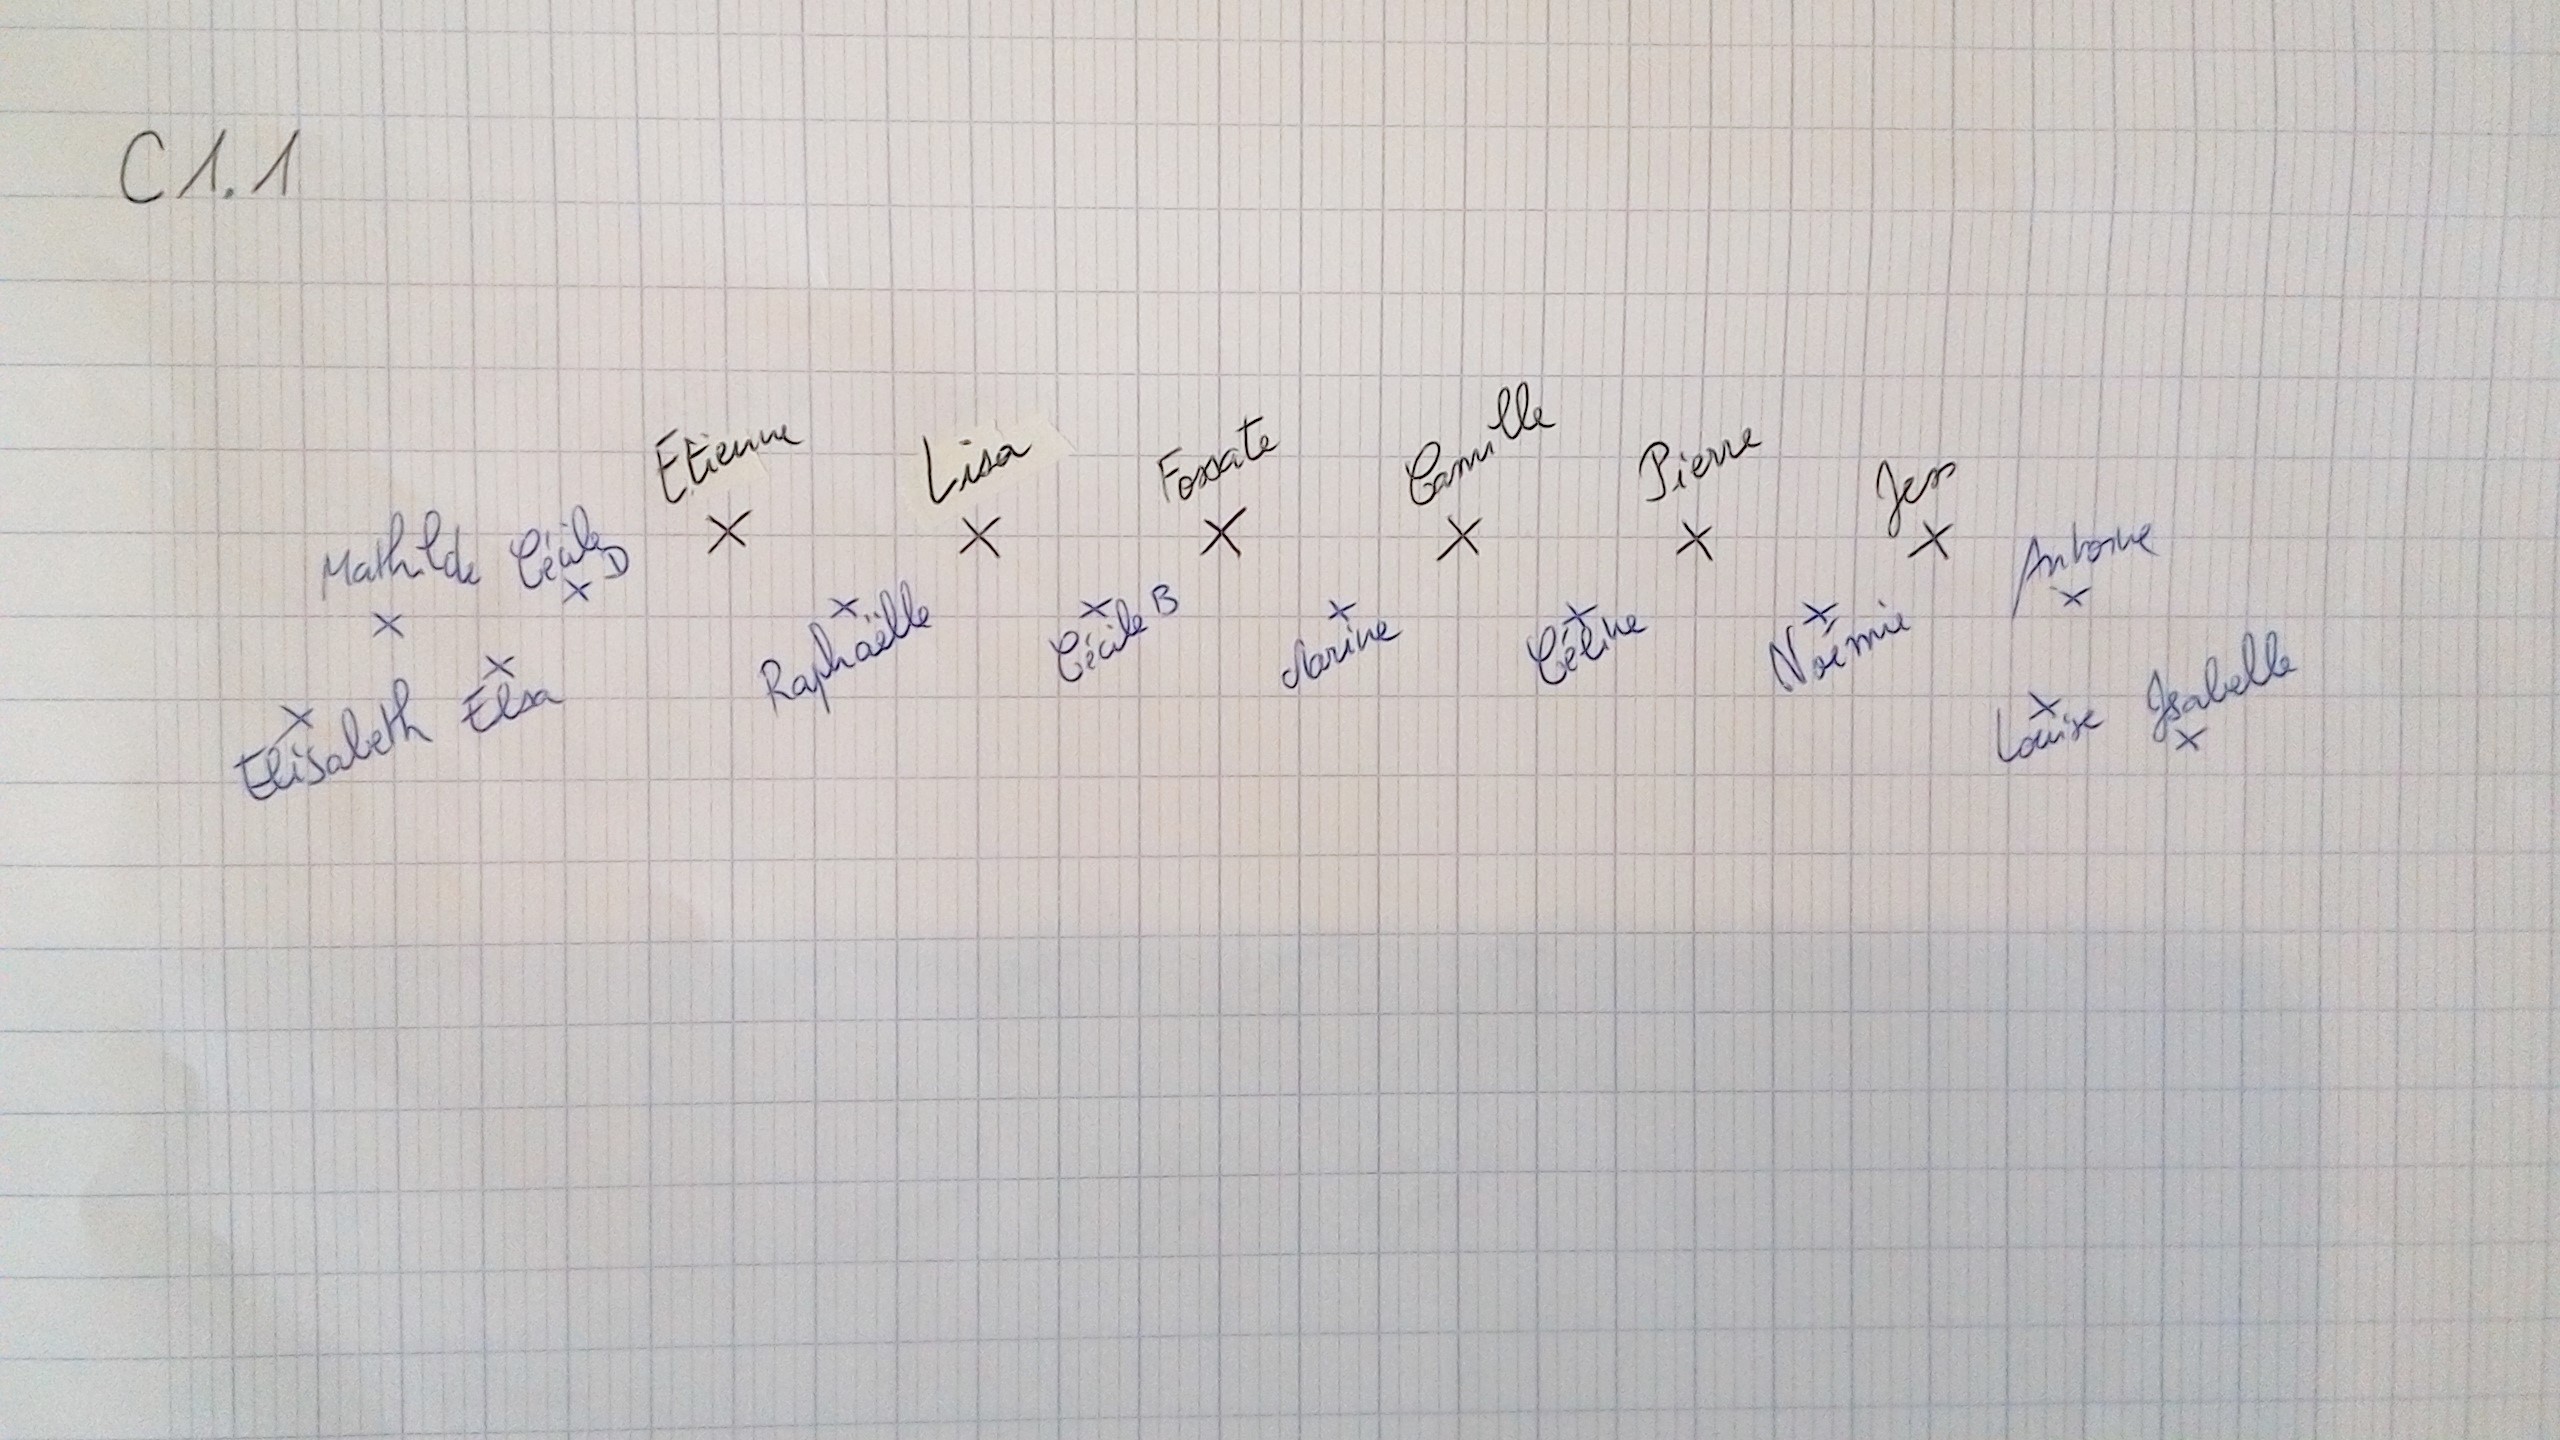 C1.1
Etienne Lisa Fossate Camille Pierre Jess
Mathilde Cécile D Antoine
Raphaëlle Cécile B Marine Céline Noémie
Elisabeth Elsa Louise Isabelle